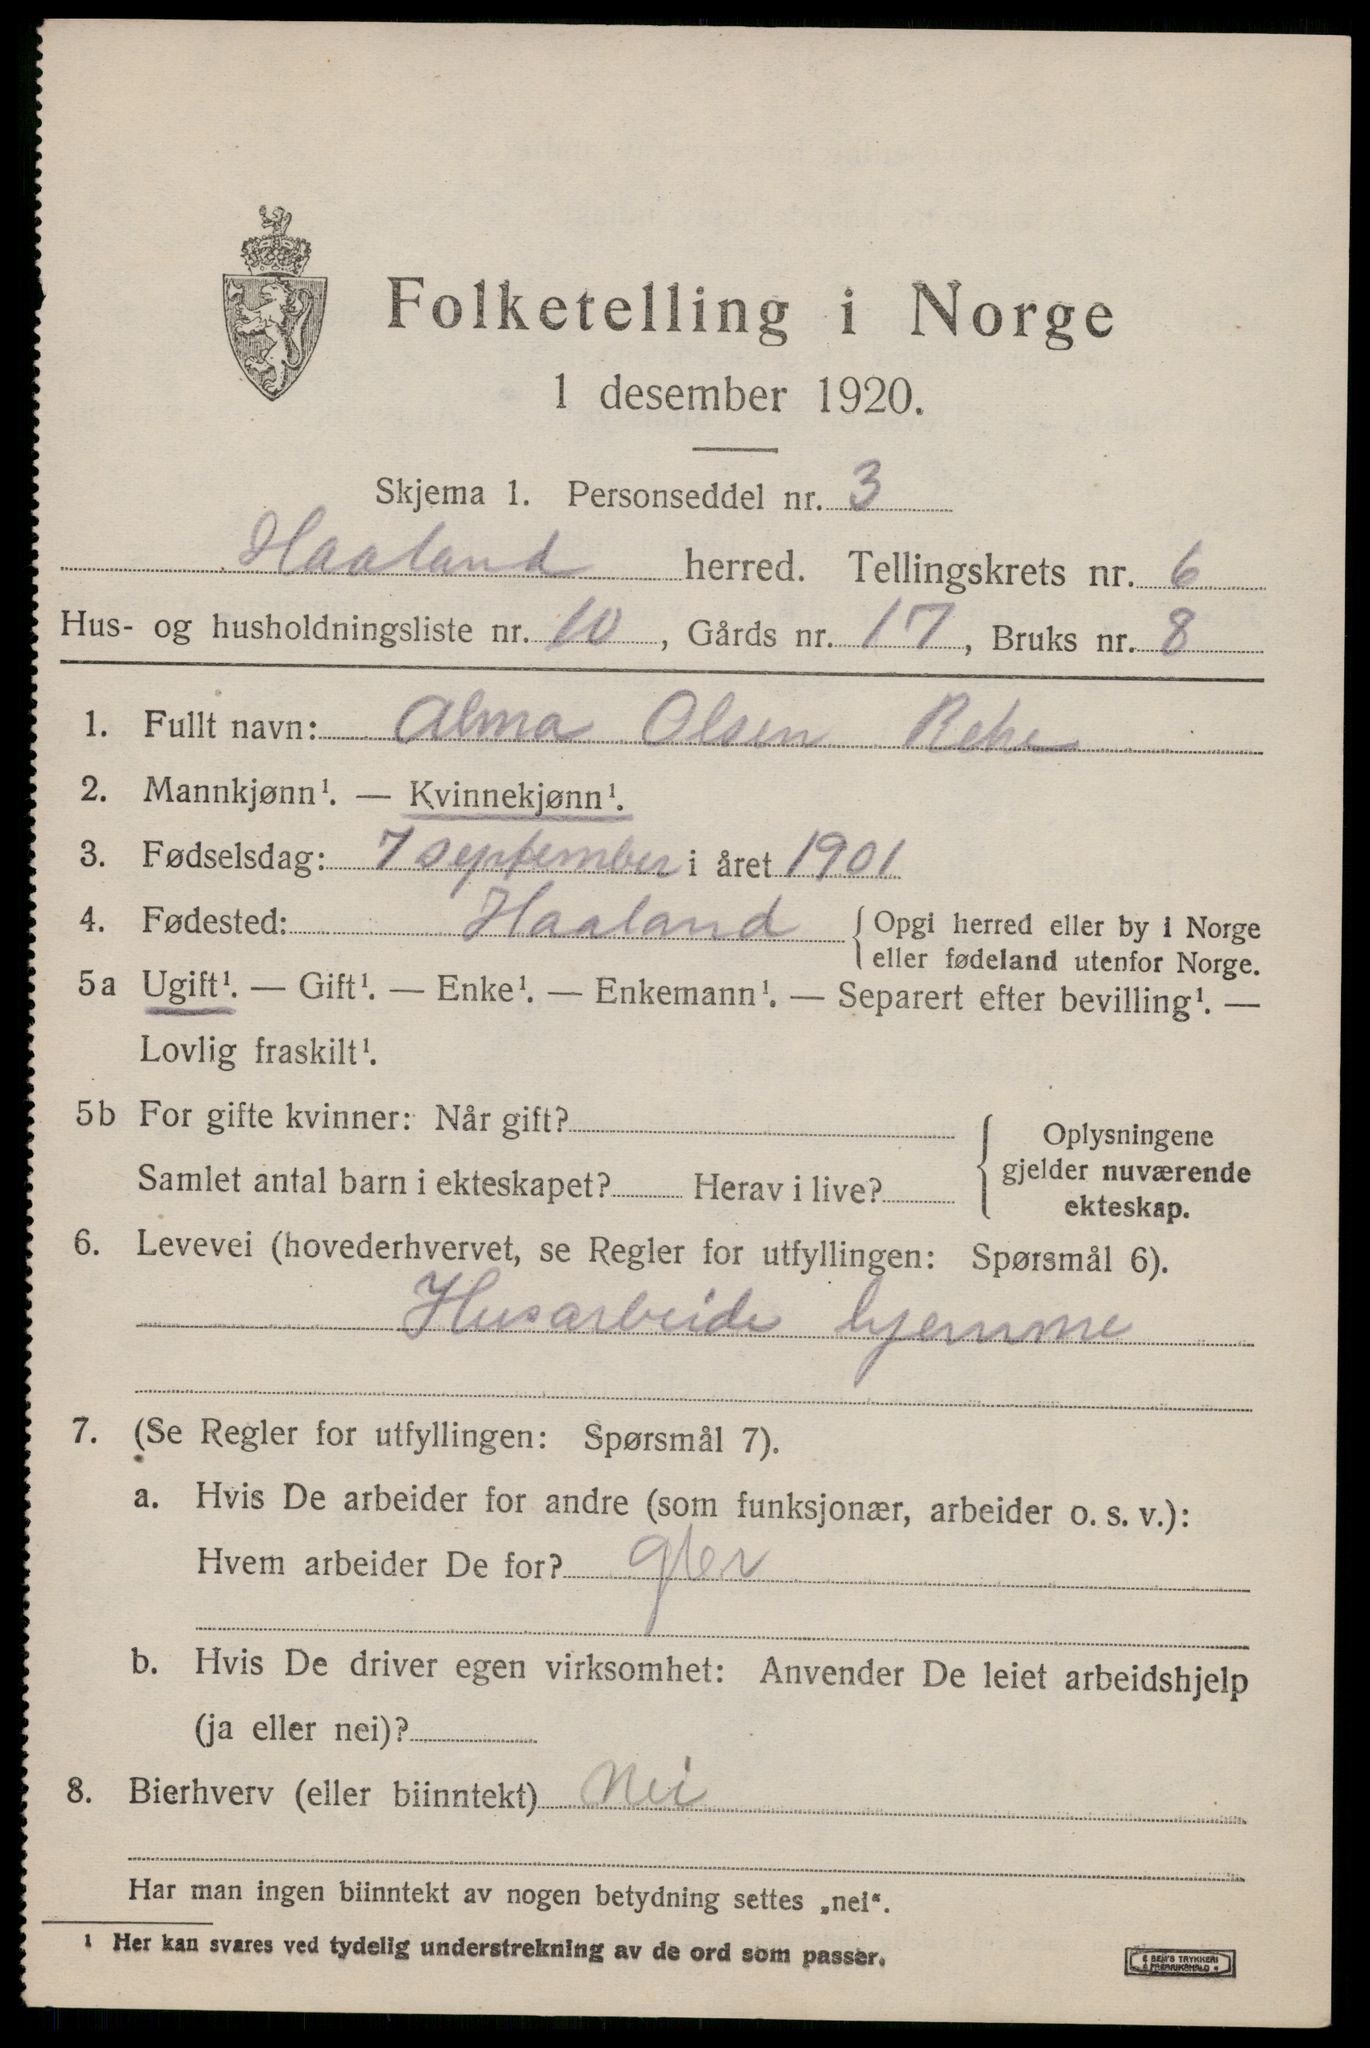 Folketelling i Norge
1 desember 1920.
Skjema 1. Personseddel nr. 3
Haaland herred. Tellingskrets nr. 6
Hus- og husholdningsliste nr. 10, Gårds nr. 17, Bruks nr. 8
1. Fullt navn: Alma Olsen
2. Mannkjønn¹. — Kvinnekjønn¹.
3. Fødselsdag: 7 september i året 1901
4. Fødested: Haaland { Opgi herred eller by i Norge
eller fødeland utenfor Norge.
5a Ugift¹. — Gift¹. — Enke¹. — Enkemann¹. — Separert efter bevilling¹. —
Lovlig fraskilt¹.
5b For gifte kvinner: Når gift?
Samlet antal barn i ekteskapet? Herav i live?
{ Oplysningene
gjelder nuværende
ekteskap.
6. Levevei (hovederhvervet, se Regler for utfyllingen: Spørsmål 6).
Husarbeide hjemme
7. (Se Regler for utfyllingen: Spørsmål 7).
a. Hvis De arbeider for andre (som funksjonær, arbeider o. s. v.):
Hvem arbeider De for?
b. Hvis De driver egen virksomhet: Anvender De leiet arbeidshjelp
(ja eller nei)?
8. Bierhverv (eller biinntekt) Nei
Har man ingen biinntekt av nogen betydning settes „nei“.
¹ Her kan svares ved tydelig understrekning av de ord som passer.